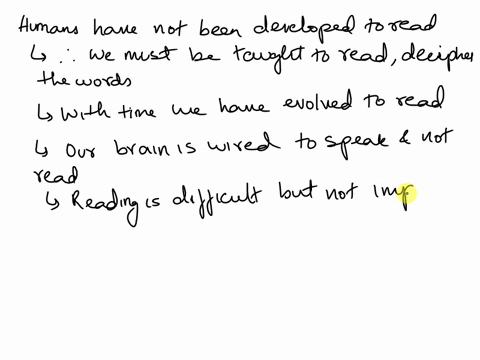 Humans have not been developed to read
↳ ∴ we must be taught to read, decipher
the words
↳ with time we have evolved to read
↳ Our brain is wired to speak & not
read
↳ Reading is difficult but not imp